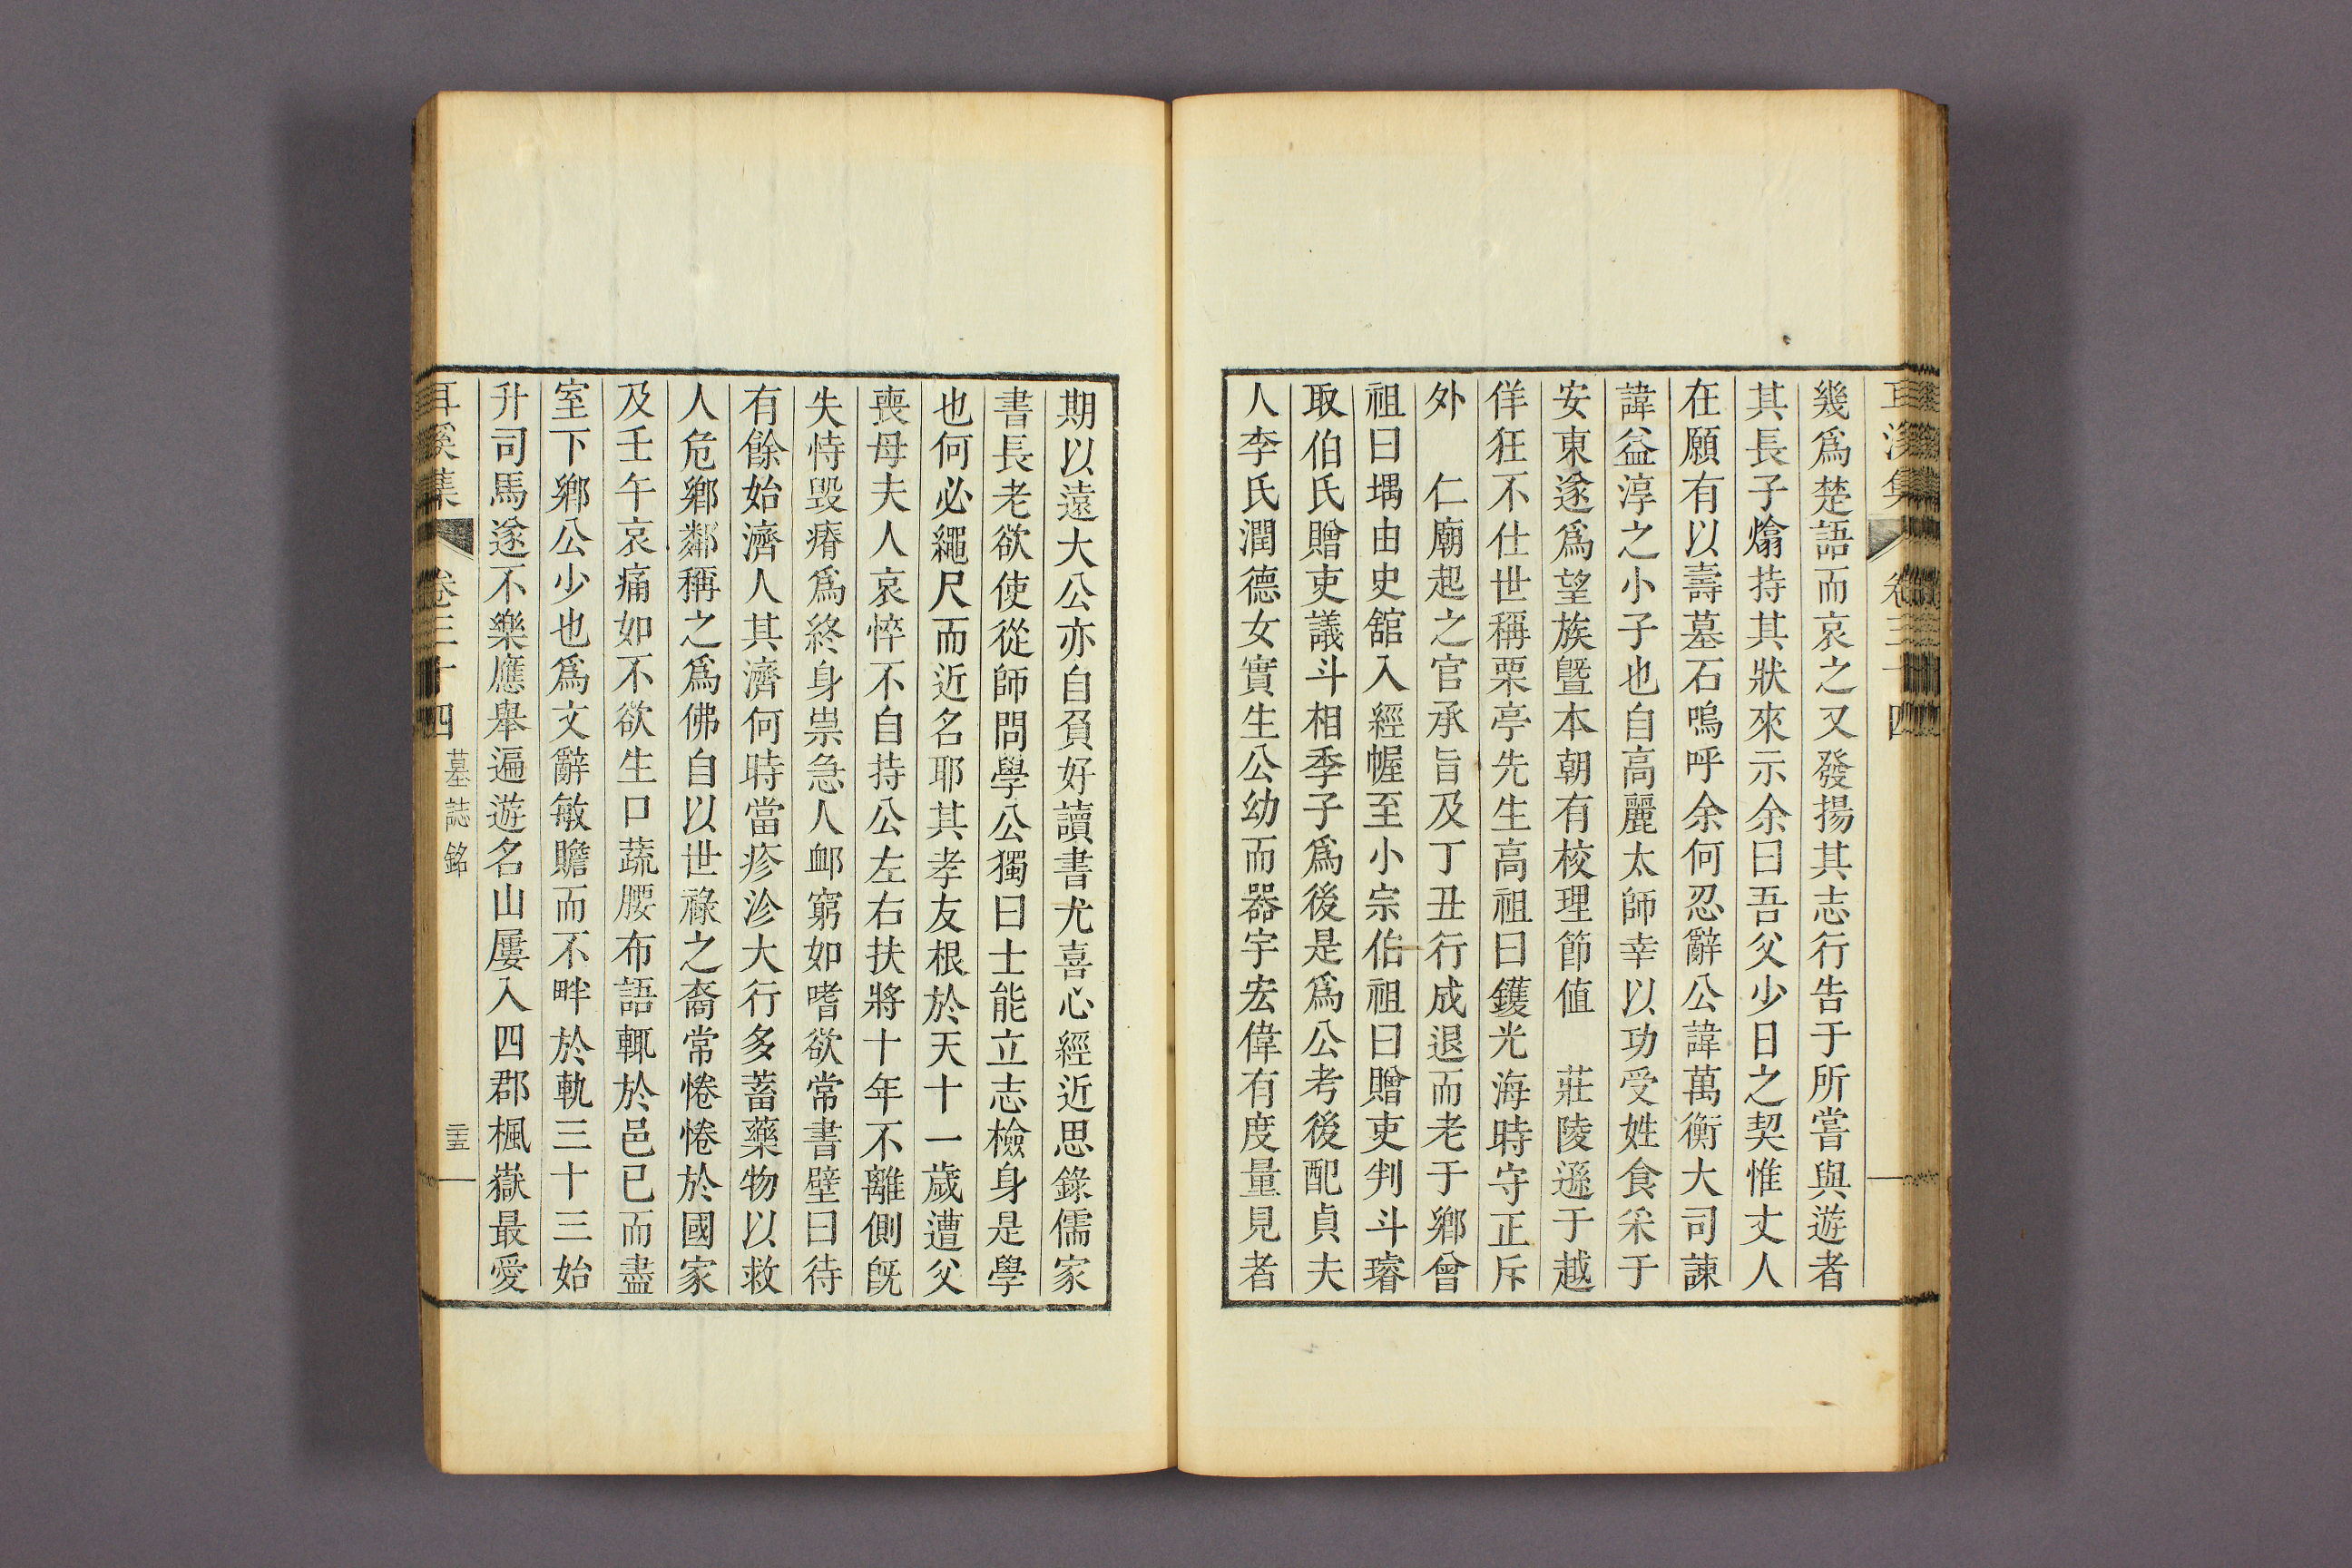 耳溪集 卷三十四
幾爲楚語而哀之又發揚其志行告于所嘗與遊者
其長子熻持其狀來示余曰吾父少日之契惟丈人
在願有以壽墓石嗚呼余何忍辭公諱萬衡大司諫
諱益淳之小子也自高麗太師幸以功受姓食采于
安東遂爲望族曁本朝有校理節値 莊陵遜于越
佯狂不仕世稱栗亭先生高祖曰鑊光海時守正斥
外 仁廟起之官承旨及丁丑行成退而老于鄕曾
祖曰堣由史舘入經幄至小宗伯祖曰贈吏判斗瑃
取伯氏贈吏議斗相季子爲後是爲公考後配貞夫
人李氏潤德女實生公幼而器宇宏偉有度量見者
期以遠大公亦自負好讀書尤喜心經近思錄儒家
書長老欲使從師問學公獨曰士能立志檢身是學
也何必繩尺而近名耶其孝友根於天十一歲遭父
喪母夫人哀悴不自持公左右扶將十年不離側旣
失恃毀瘠爲終身祟急人衈窮如嗜欲常書壁曰待
有餘始濟人其濟何時當疹沴大行多蓄藥物以救
人危鄕鄰稱之爲佛自以世祿之裔常惓惓於國家
及壬午哀痛如不欲生口蔬腰布語輒於邑已而盡
室下鄕公少也爲文辭敏贍而不畔於軌三十三始
升司馬遂不樂應舉遍遊名山屢入四郡楓嶽最愛
耳溪集 卷三十四 墓誌銘 二十五